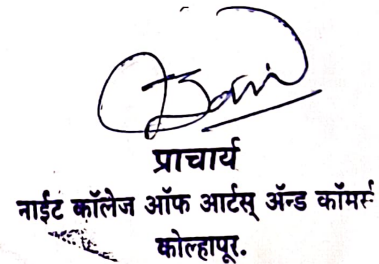 प्राचार्य
नाईट कॉलेज ऑफ आर्टस् ॲन्ड कॉमर्स
कोल्हापूर.